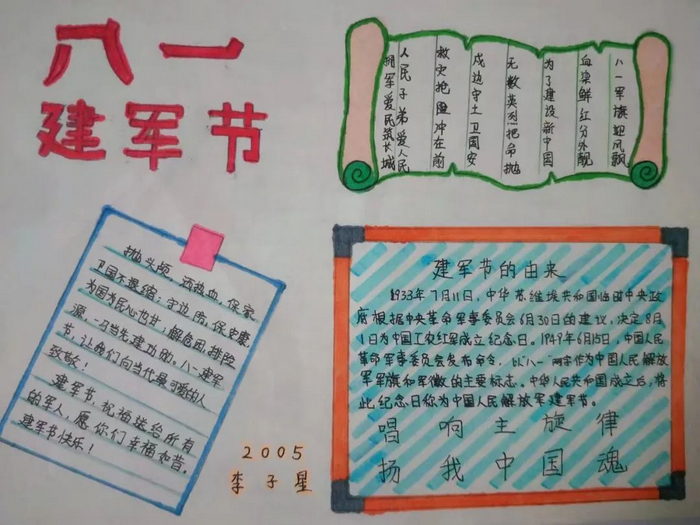 八一
建军节
八一军旗迎风飘
血染鲜红分外靓
为了建设新中国
无数英烈把命抛
戍边守土卫国安
救灾抢险冲在前
人民子弟爱人民
拥军爱民筑长城
抛头颅,洒热血,保家
卫国不退缩;守边防,保安康,
为国为民心也甘;解危困,排险
源,一马当先建功勋。八一建军
节,让我们向当代最可爱的人
致敬!
建军节,祝福送给所有
的军人,愿你们幸福如昔。
建军节快乐!
2005
李子星
建军节的由来
1933年7月11日,中华苏维埃共和国临时中央政
府根据中央革命军事委员会6月30日的建议,决定8月
1日为中国工农红军成立纪念日。1949年6月15日,中国人民
革命军事委员会发布命令,以"八一"两字作为中国人民解放
军军旗和军徽的主要标志。中华人民共和国成立后,将
此纪念日称为中国人民解放军建军节。
唱响主旋律
扬我中国魂